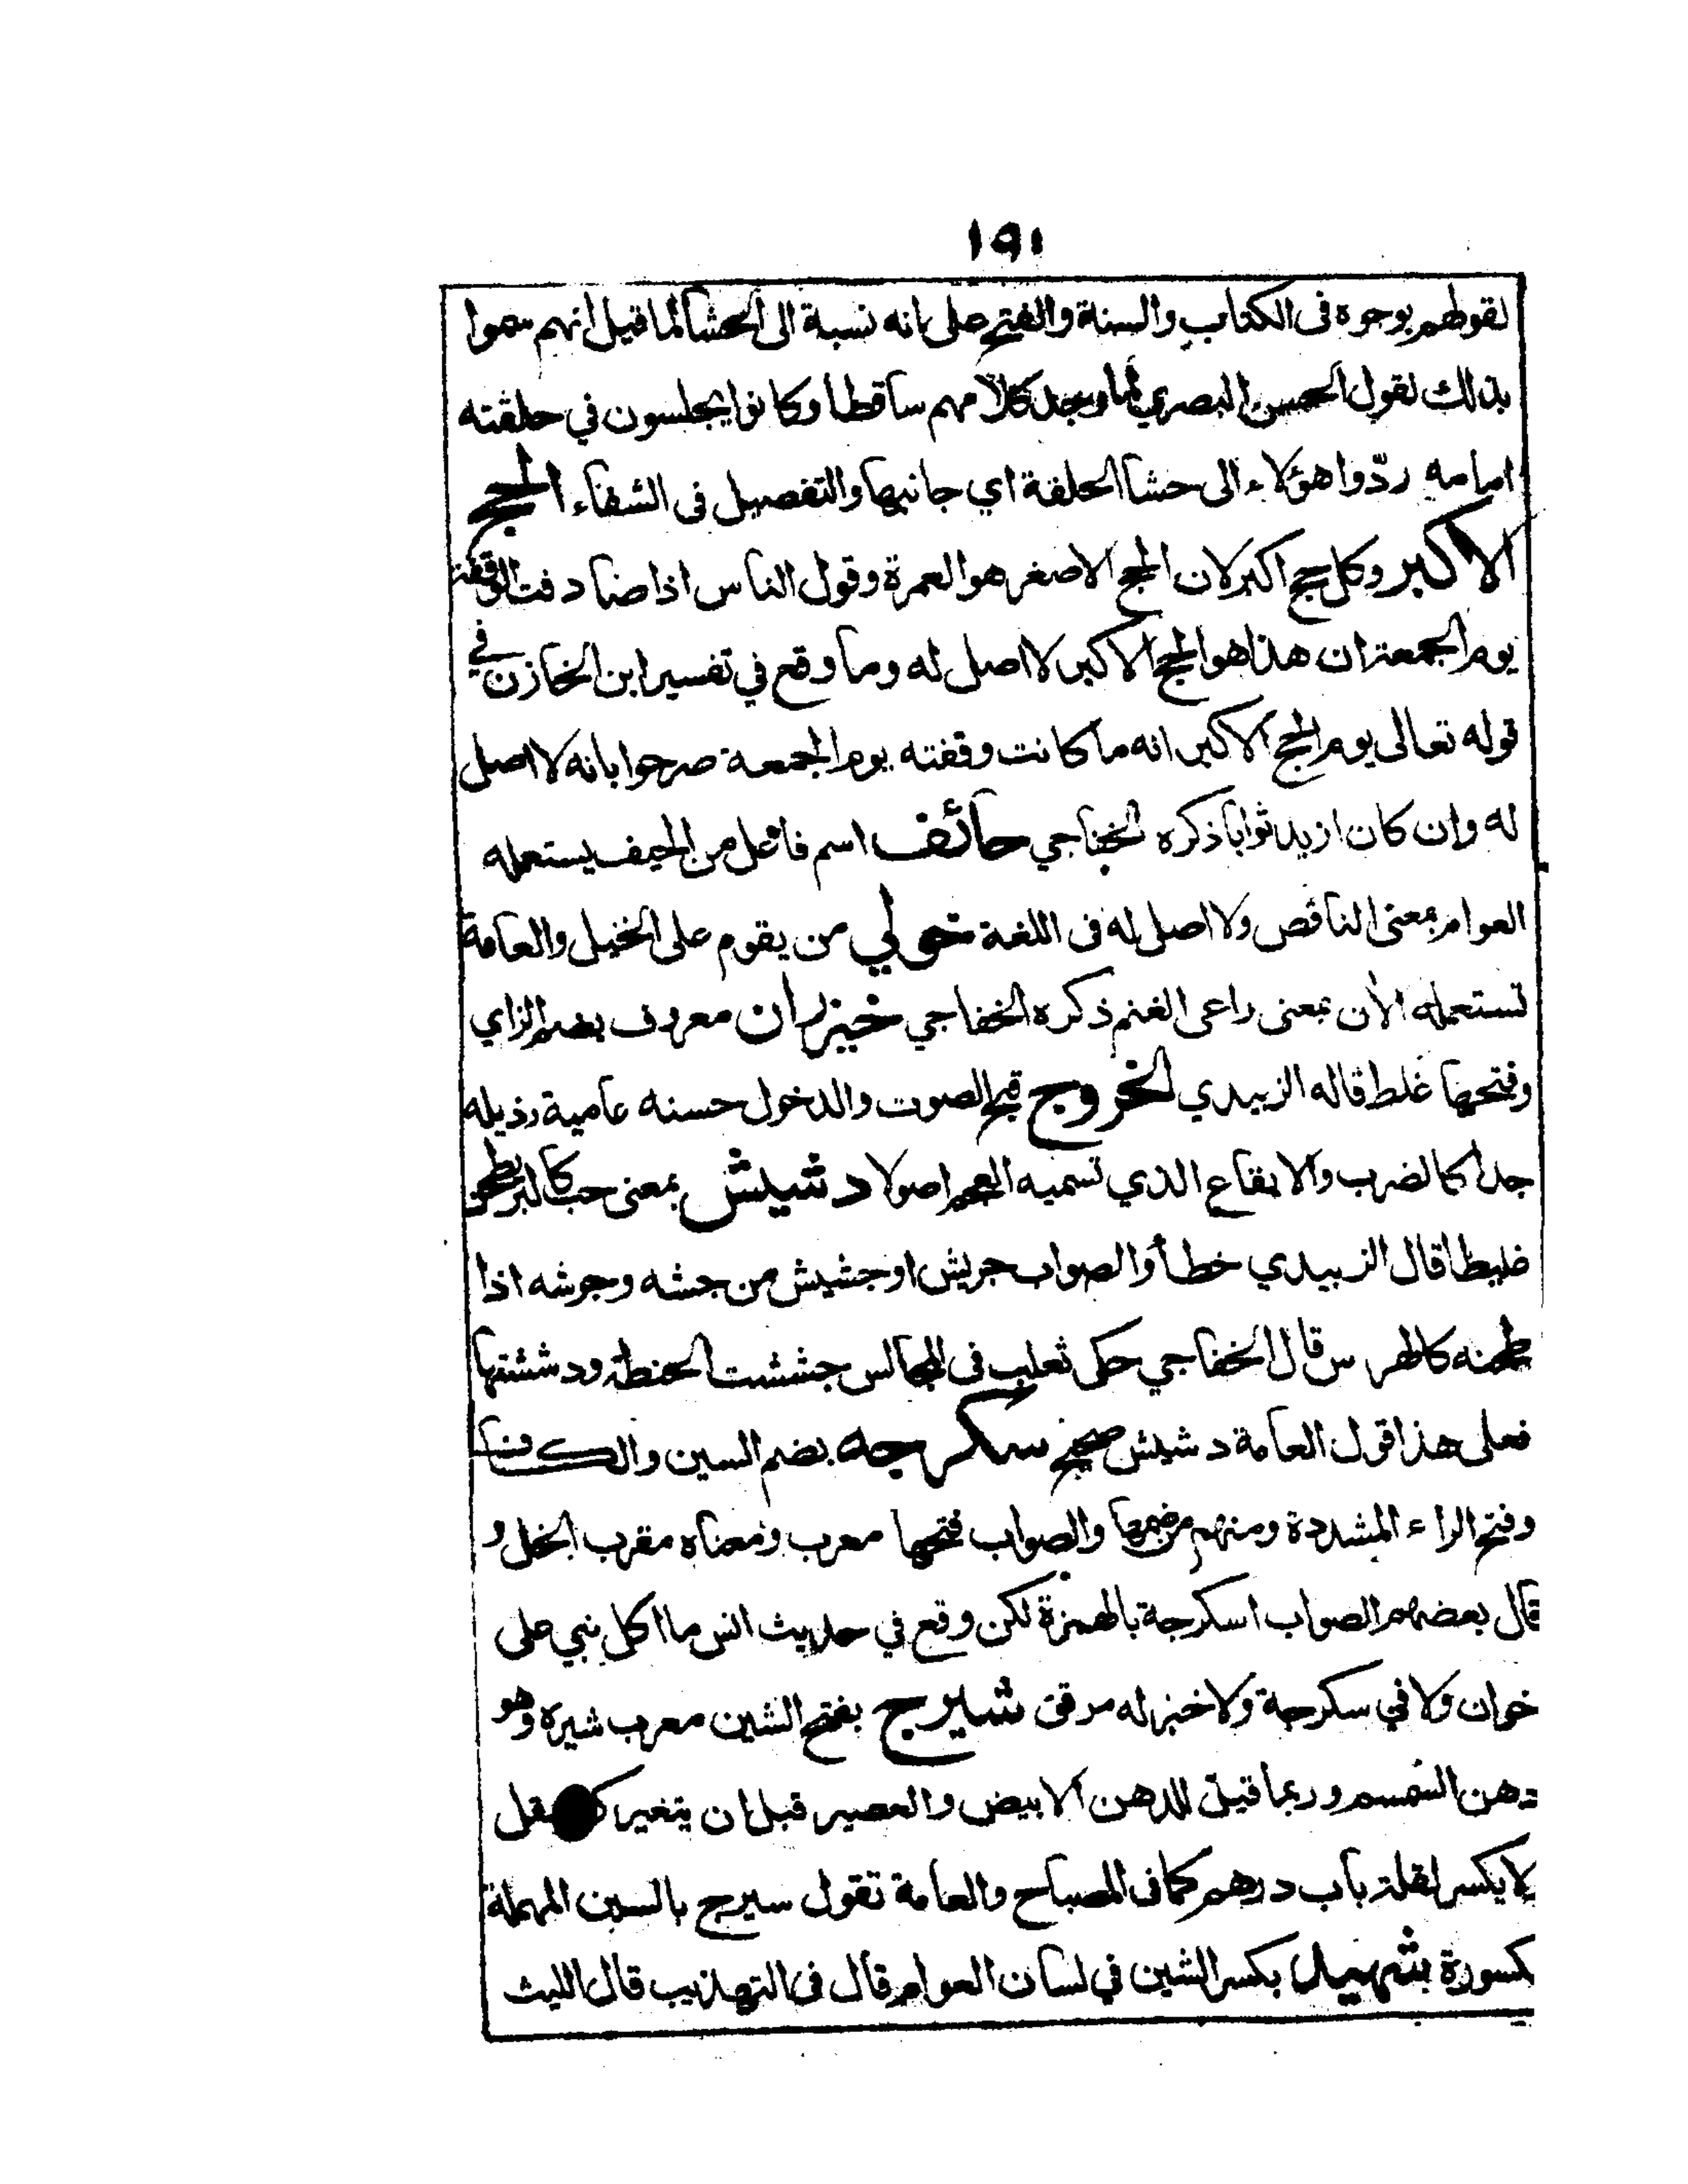 ١٩١
لقولهم بوجوه فى الكتاب والسنة والفتح على انه نسبة الى الحشا لما قيل انهم سموا
بذلك لقول الحسن البصري لما وجد كلامهم ساقطا وكانوا يجلسون في حلقته
امامه ردّوا هؤلاء الى حشا الحلقة اي جانبها والتفصيل فى الشفاء الحج
الاكبر وكل حج اكبر لان الحج الاصغر هو العمرة وقول الناس اذا صادفت الوقفة
يوم الجمعة ان هذا هو الحج الاكبر لا اصل له وما وقع في تفسير ابن الخازن في
قوله تعالى يوم الحج الاكبر انه ما كانت وقفته يوم الجمعة صرحوا بانه لا اصل
له وان كان ازيد ثوابا ذكره الخفاجي حائف اسم فاعل من الحيف يستعمله
العوام بمعنى الناقص ولا اصل له فى اللغة خولي من يقوم على الخيل والعامة
تستعمله الأن بمعنى راعى الغنم ذكره الخفاجي خيزران معروف بضم الزاي
وفتحها غلط قاله الزبيدي الخروج قبح الصوت والدخول حسنه عامية رذيله
جدا كالضرب والايقاع الذي تسميه العجم اصولا دشيش بمعنى حب كالبر يطحن
غليظا قال الزبيدي خطأ والصواب جريش او جشيش من جشه وجرشه اذا
طحنه كالهرس قال الخفاجي حكى ثعلب فى المجالس جششت الحنطة ودششتها
فعلى هذا قول العامة دشيش صحيح سكرجه بضم السين والكاف
وفتح الراء المشددة ومنهم من ضمها والصواب فتحها معرب ومعناه مقرب الخل و
قال بعضهم الصواب اسكرجة بالهمزة لكن وقع في حديث انس ما اكل نبي على
خوان ولا في سكرجة ولا خبز له مرقق شيرج بفتح الشين معرب شيره وهو
دهن السمسم وربما قيل للدهن الابيض والعصير قبل ان يتغير
لا يكسر لقلة باب درهم كما فى المصباح والعامة تقول سيرج بالسين المهملة
كسورة شهيد بكسر الشين في لسان العوام قال فى التهذيب قال الليث